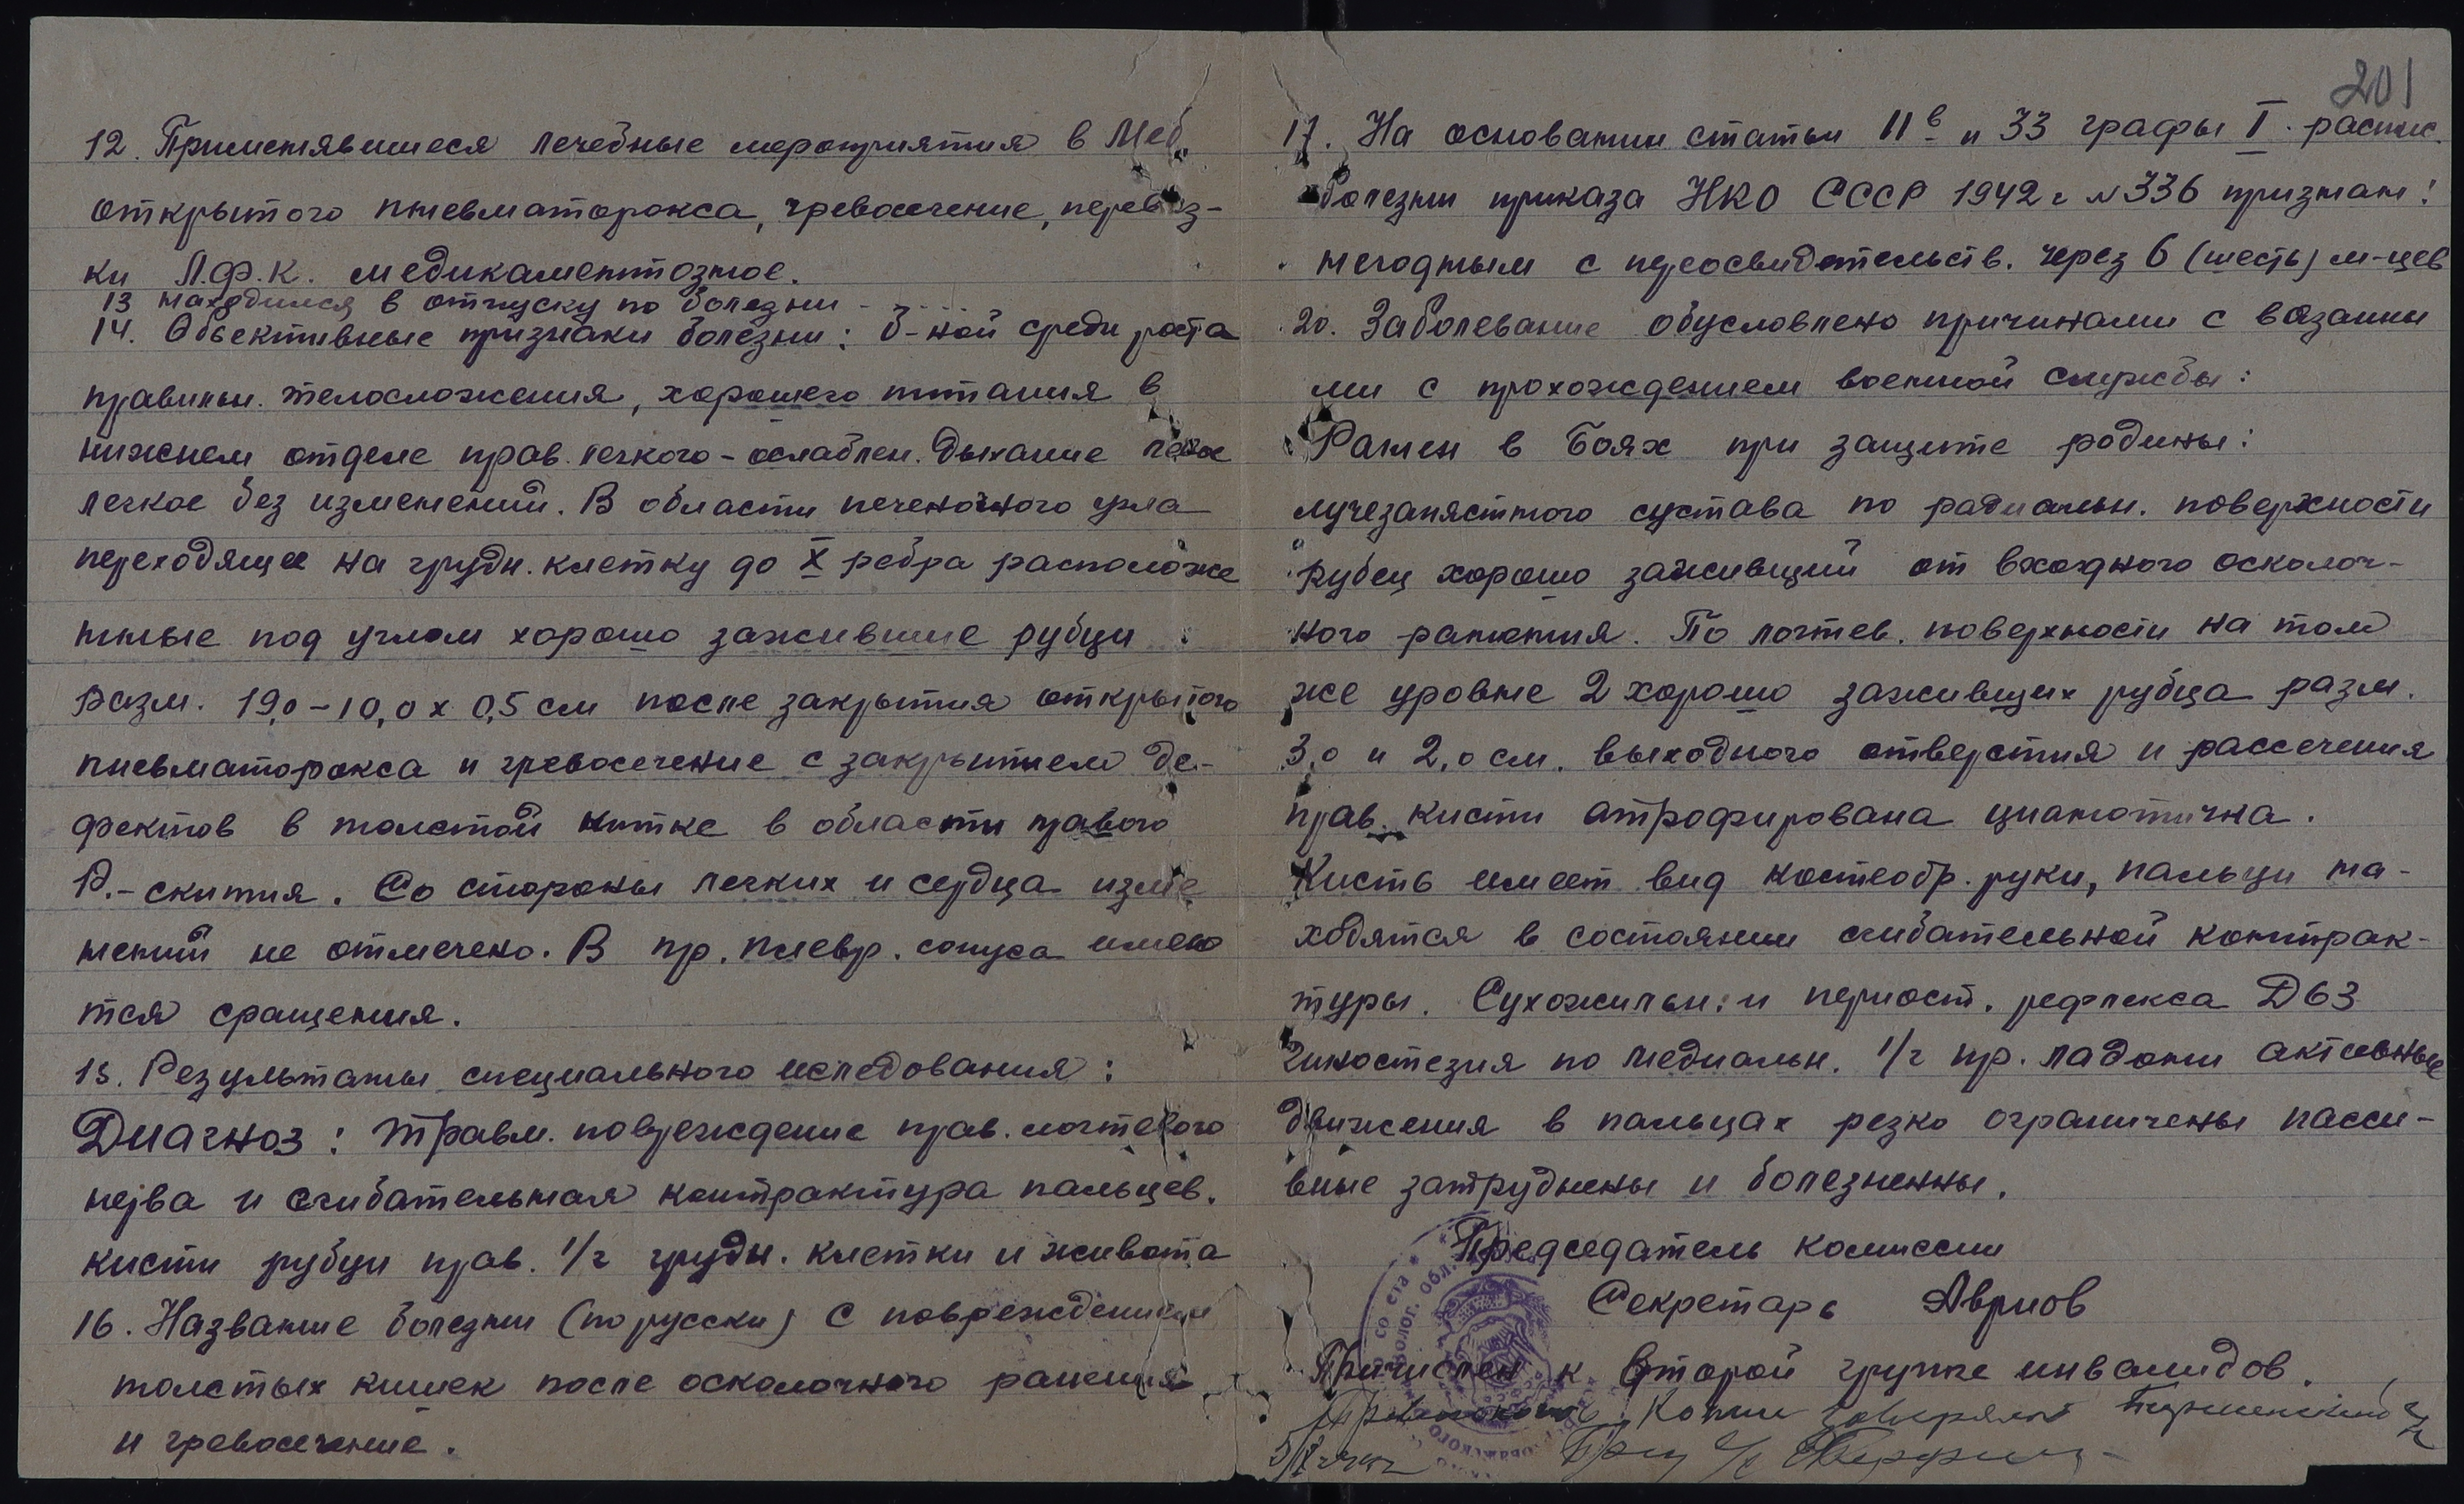 201
12. Применявшиеся лечебные мероприятия в Мед.
открытого пневматоракса, чревосечение, перевяз-
ки Л.Ф.К. медикаментозное.
13 находился в отпуску по болезни - . . . .
14. Объективные признаки болезни: б-ной средн роста
правильн. телосложения, хорошего питания в
нижнем отделе прав. легкого - ослаблен. дыхание левое
легкое без изменений. В области печеночного угла
переходящее на грудн. клетку до X ребра расположе
нные под углом хорошо зажившие рубцы
разм. 19,0 - 10,0 х 0,5 см после закрытия открытого
пневматоракса и чревосечение с закрытием де-
фектов в толстой китке в области правого
Со стороны легких и сердца изме
нений не отмечено. В пр. плевр. синуса имею
тся сращения.
15. Результаты специального иследования:
Диагноз: травм. повреждение прав. локтевого
нерва и сгибательная контрактура пальцев.
кисти рубцы прав. 1/2 грудн. клетки и живота
16. Название болезни (по русски) с повреждением
толстых кишек после осколочного ранения
и чревосечение.
17. На основании статьи 11в и 33 графы I. распис.
болезни приказа НКО СССР 1942 г № 336 признан:
негодным с переосвидетельств. через 6 (шесть) м-цев
20. Заболевание обусловлено причинами с вязанны
ми с прохождением военной службы:
Ранен в боях при защите родины:
лучезапястного сустава по радиальн. поверхности
Рубец хорошо заживщий от входного осколоч-
ного ранения. По локтев. поверхности на том
же уровне 2 хорошо заживщих рубца разм.
3,0 и 2,0 см. выходного отверстия и рассечения
прав. кисти атрофирована цианотична.
Кисть имеет вид когтеобр. руки, пальцы на-
ходятся в состоянии сгибательной контрак-
туры. Сухожильн: и периост. рефлекса
Гипостезия по медиальн. 1/2 пр. ладони активные
движения в пальцах резко ограничены пасси-
вные затруднены и болезненны.
Председатель комиссии
Секретарь Аврнов
Причислен к второй группе инвалидов.
Копии заверял